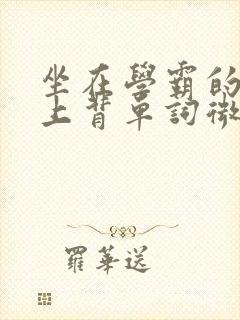 坐在學霸的
上背單詞微
羅華送